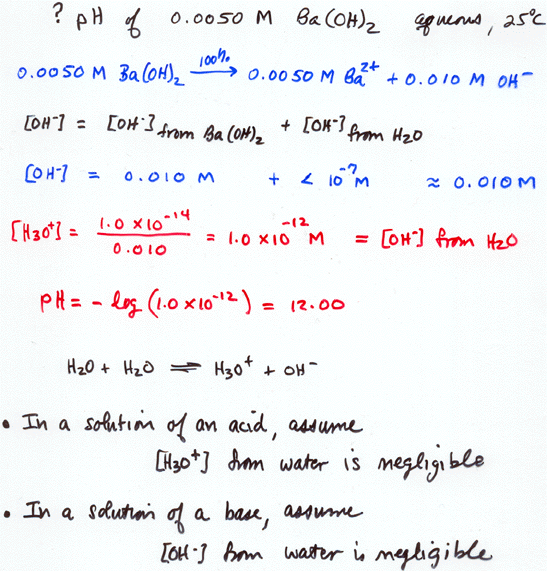 ? pH of 0.0050 M Ba(OH)₂ aqueous, 25°C
0.0050 M Ba(OH)₂ —100%→ 0.0050 M Ba²⁺ + 0.010 M OH⁻
[OH⁻] = [OH⁻] from Ba(OH)₂ + [OH⁻] from H₂O
[OH⁻] = 0.010 M + < 10⁻⁷ M ≈ 0.010 M
[H₃O⁺] = 1.0 × 10⁻¹⁴ / 0.010 = 1.0 × 10⁻¹² M = [OH⁻] from H₂O
pH = - log (1.0 × 10⁻¹²) = 12.00
H₂O + H₂O ⇌ H₃O⁺ + OH⁻
• In a solution of an acid, assume
[H₃O⁺] from water is negligible
• In a solution of a base, assume
[OH⁻] from water is negligible